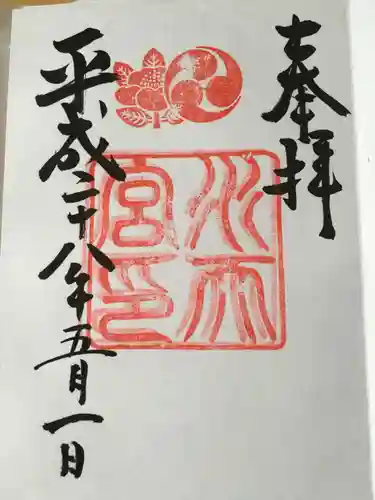 奉拝
水天宮印
平成二十八年五月一日